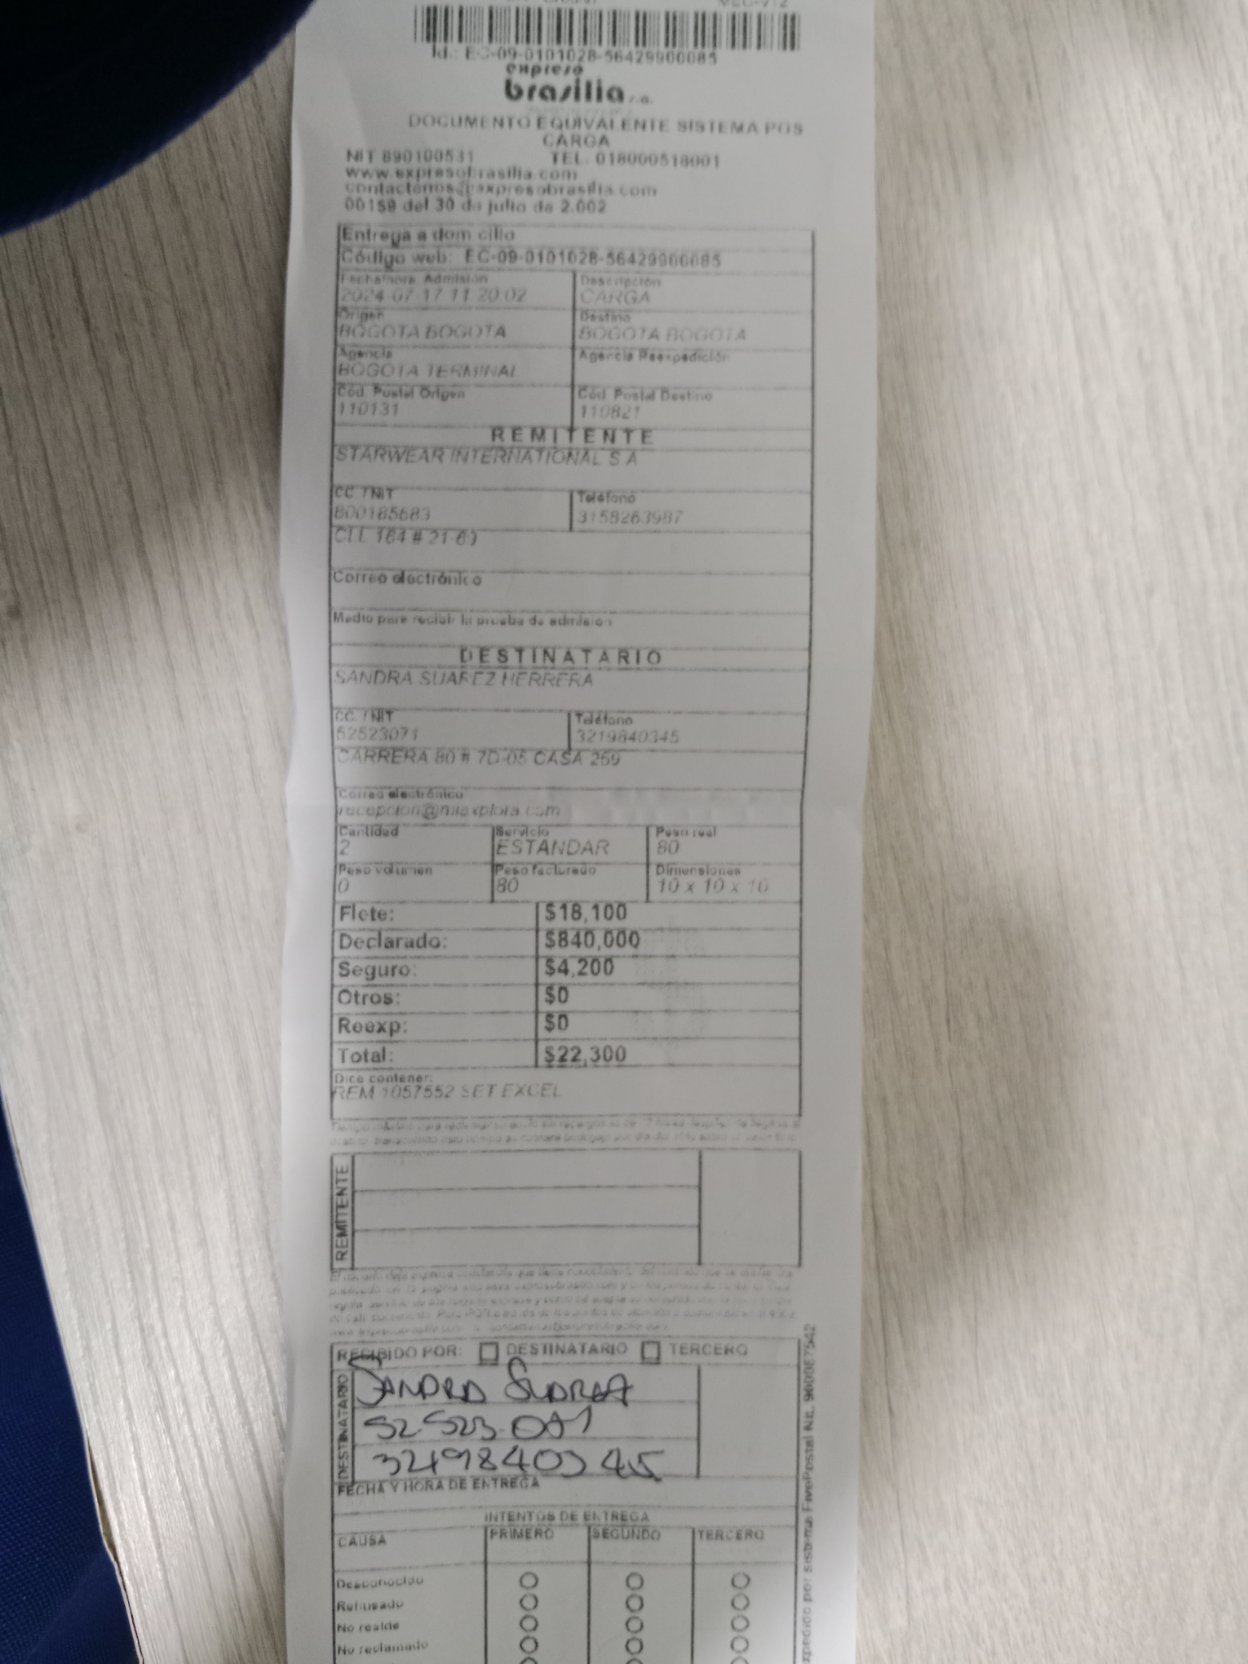 Id.: EC-09-0101028-56429900085
expreso
brasilia s.a.
DOCUMENTO EQUIVALENTE SISTEMA POS
CARGA
NIT 890100531 TEL. 018000518001
www.expresobrasilia.com
contactenos@expresobrasilia.com
00159 del 30 de julio de 2.002
Entrega a domicilio
Código web: EC-09-0101028-56429900085
Fecha/hora Admisión Descripción
2024-07-17 11:20:02 CARGA
Origen Destino
BOGOTA BOGOTA BOGOTA BOGOTA
Agencia Agencia Reexpedición
BOGOTA TERMINAL
Cód. Postal Origen Cód. Postal Destino
110131 110821
REMITENTE
STARWEAR INTERNATIONAL S A
CC / NIT Teléfono
800185683 3158263987
CLL 164 # 21-
Correo electrónico
Medio para recibir la prueba de admisión
DESTINATARIO
SANDRA SUAREZ HERRERA
CC. / NIT Teléfono
52523071 3219840345
CARRERA 80 # 7D-05 CASA 259
Correo electrónico
recepcion@miaxplora.com
Cantidad Servicio Peso real
2 ESTANDAR 80
Peso volumen Peso facturado Dimensiones
0 80 10 x 10 x 10
Flete: $18,100
Declarado: $840,000
Seguro: $4,200
Otros: $0
Reexp: $0
Total: $22,300
Dice contener:
REM 1057552 SET EXCEL
REMITENTE
RECIBIDO POR: DESTINATARIO TERCERO
DESTINATARIO
SANDRA SUAREZ
52.523.071
3219840345
FECHA Y HORA DE ENTREGA
INTENTOS DE ENTREGA
CAUSA PRIMERO SEGUNDO TERCERO
Desconocido
Rehusado
No reside
No reclamado
expedido por sistema FivePostal Nit. 900087542